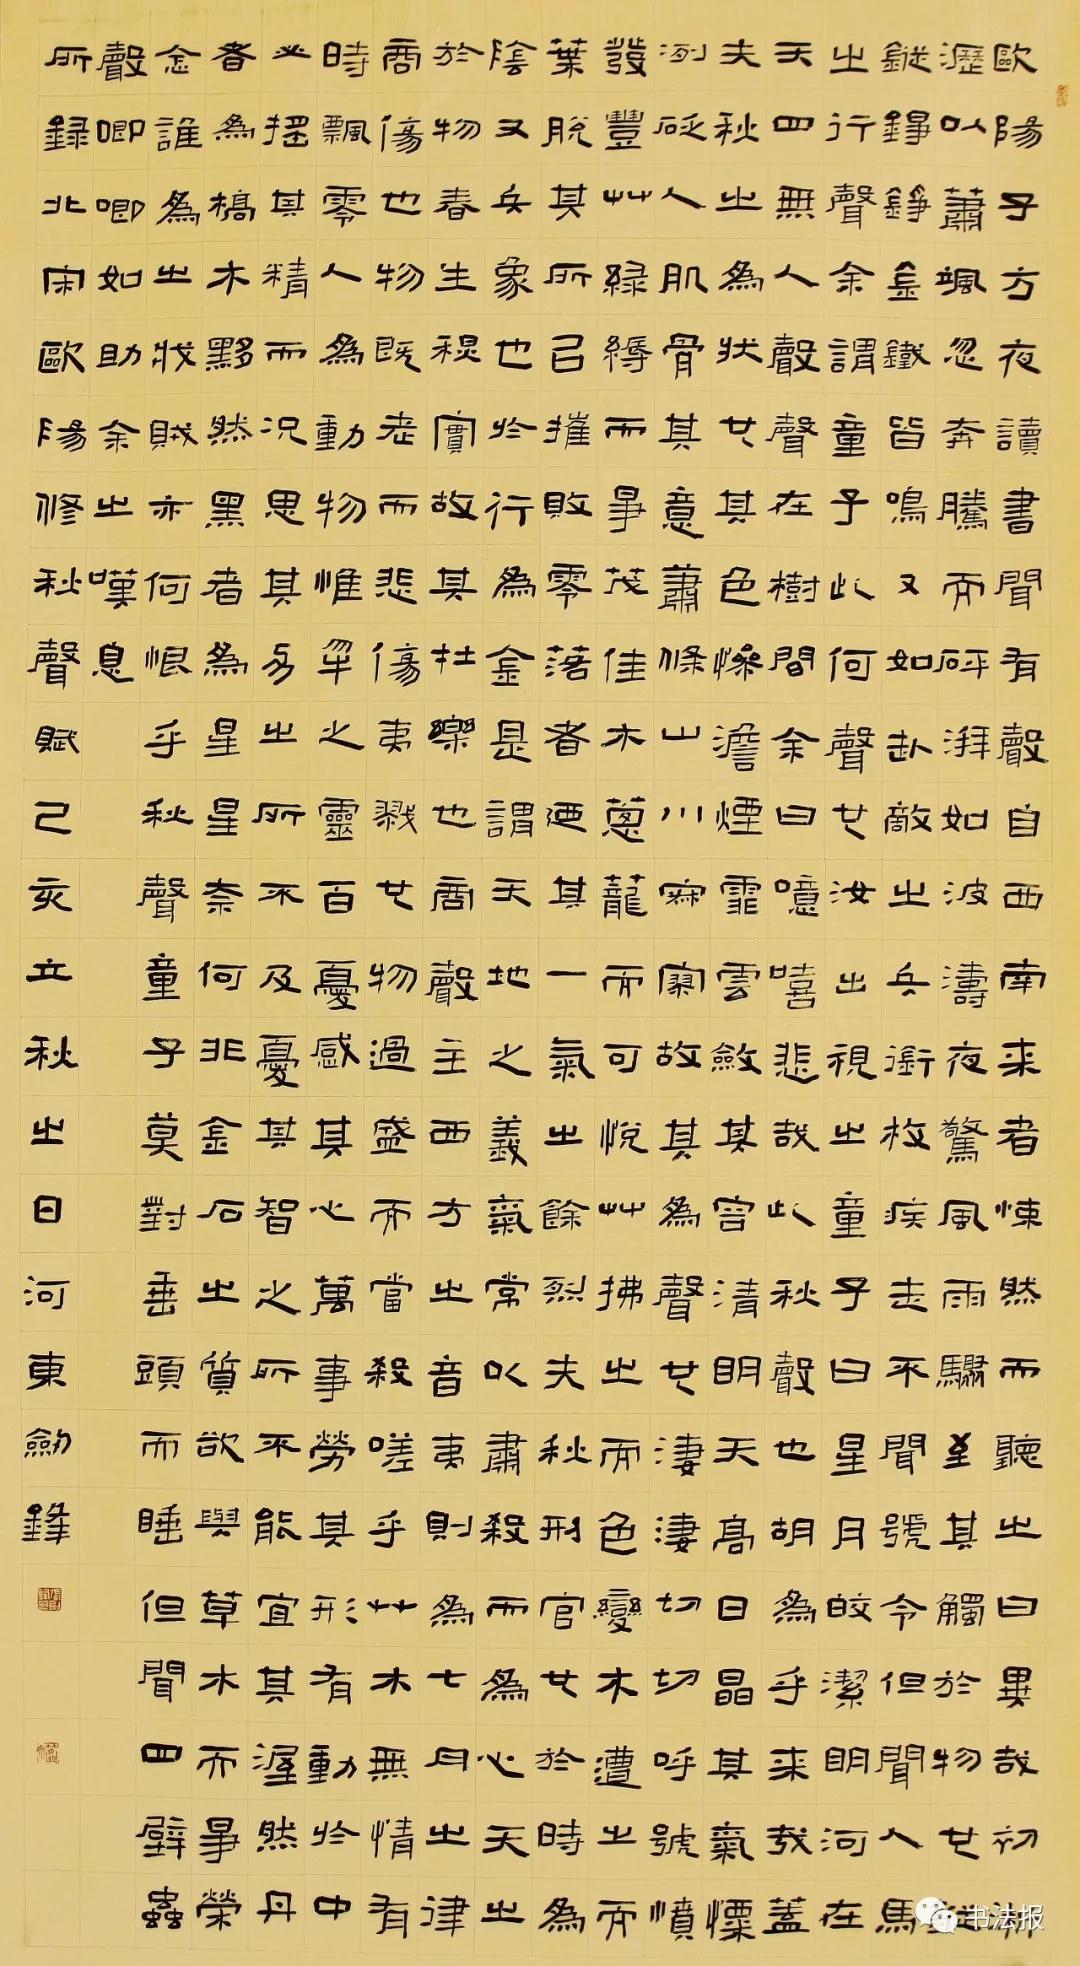 歐陽子方夜讀書聞有聲自西南来者悚然而聽之曰異哉初淅
瀝以蕭颯忽奔騰而砰湃如波濤夜驚風雨驟至其觸於物也
鏦錚錚金鐵皆鳴又如赴敵之兵銜枚疾走不聞號令但聞人馬
之行聲余謂童子此何聲也汝出視之童子曰星月皎潔明河在
天四無人聲聲在樹間余曰噫嘻悲哉此秋聲也胡為乎来哉蓋
夫秋之為狀也其色慘澹煙霏雲斂其容清明天高日晶其氣慄
冽砭人肌骨其意蕭條山川寂寥故其為聲也淒淒切切呼號憤
發豐艸綠縟而爭茂佳木蔥蘢而可悅艸拂之而色變木遭之而
葉脫其所以摧敗零落者廼其一氣之餘烈夫秋刑官也於時為
陰又兵象也於行為金是謂天地之義氣常以肅殺而為心天之
於物春生秋實故其在樂也商聲主西方之音夷則為七月之律
商傷也物既老而悲傷夷戮也物過盛而當殺嗟乎艸木無情有
時飄零人為動物惟之靈百憂感其心萬事勞其形有動於中
必搖其精而況思其力之所不及憂其智之所不能宜其渥然丹
者為槁木黟然黑者為星星奈何非金石之質欲與草木而爭榮
念誰為之戕賊亦何恨乎秋聲童子莫對垂頭而睡但聞四壁蟲
聲唧唧如助余之嘆息
所錄北宋歐陽修秋聲賦己亥立秋之日河東劍鋒
书法报